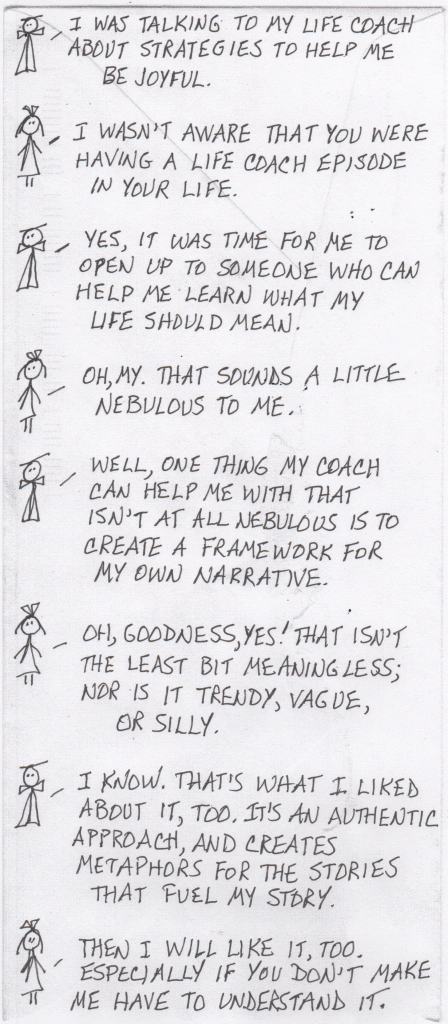 I WAS TALKING TO MY LIFE COACH
ABOUT STRATEGIES TO HELP ME
BE JOYFUL.
I WASN'T AWARE THAT YOU WERE
HAVING A LIFE COACH EPISODE
IN YOUR LIFE.
YES, IT WAS TIME FOR ME TO
OPEN UP TO SOMEONE WHO CAN
HELP ME LEARN WHAT MY
LIFE SHOULD MEAN.
OH, MY. THAT SOUNDS A LITTLE
NEBULOUS TO ME.
WELL, ONE THING MY COACH
CAN HELP ME WITH THAT
ISN'T AT ALL NEBULOUS IS TO
CREATE A FRAMEWORK FOR
MY OWN NARRATIVE.
OH, GOODNESS, YES! THAT ISN'T
THE LEAST BIT MEANINGLESS;
NOR IS IT TRENDY, VAGUE,
OR SILLY.
I KNOW. THAT'S WHAT I LIKED
ABOUT IT, TOO. IT'S AN AUTHENTIC
APPROACH, AND CREATES
METAPHORS FOR THE STORIES
THAT FUEL MY STORY.
THEN I WILL LIKE IT, TOO.
ESPECIALLY IF YOU DON'T MAKE
ME HAVE TO UNDERSTAND IT.